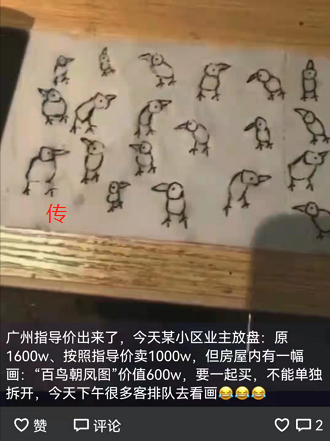 传
广州指导价出来了，今天某小区业主放盘：原
1600w、按照指导价卖1000w，但房屋内有一幅
画：“百鸟朝凤图”价值600w，要一起买，不能单独
拆开，今天下午很多客排队去看画😂😂😂
赞 评论 2